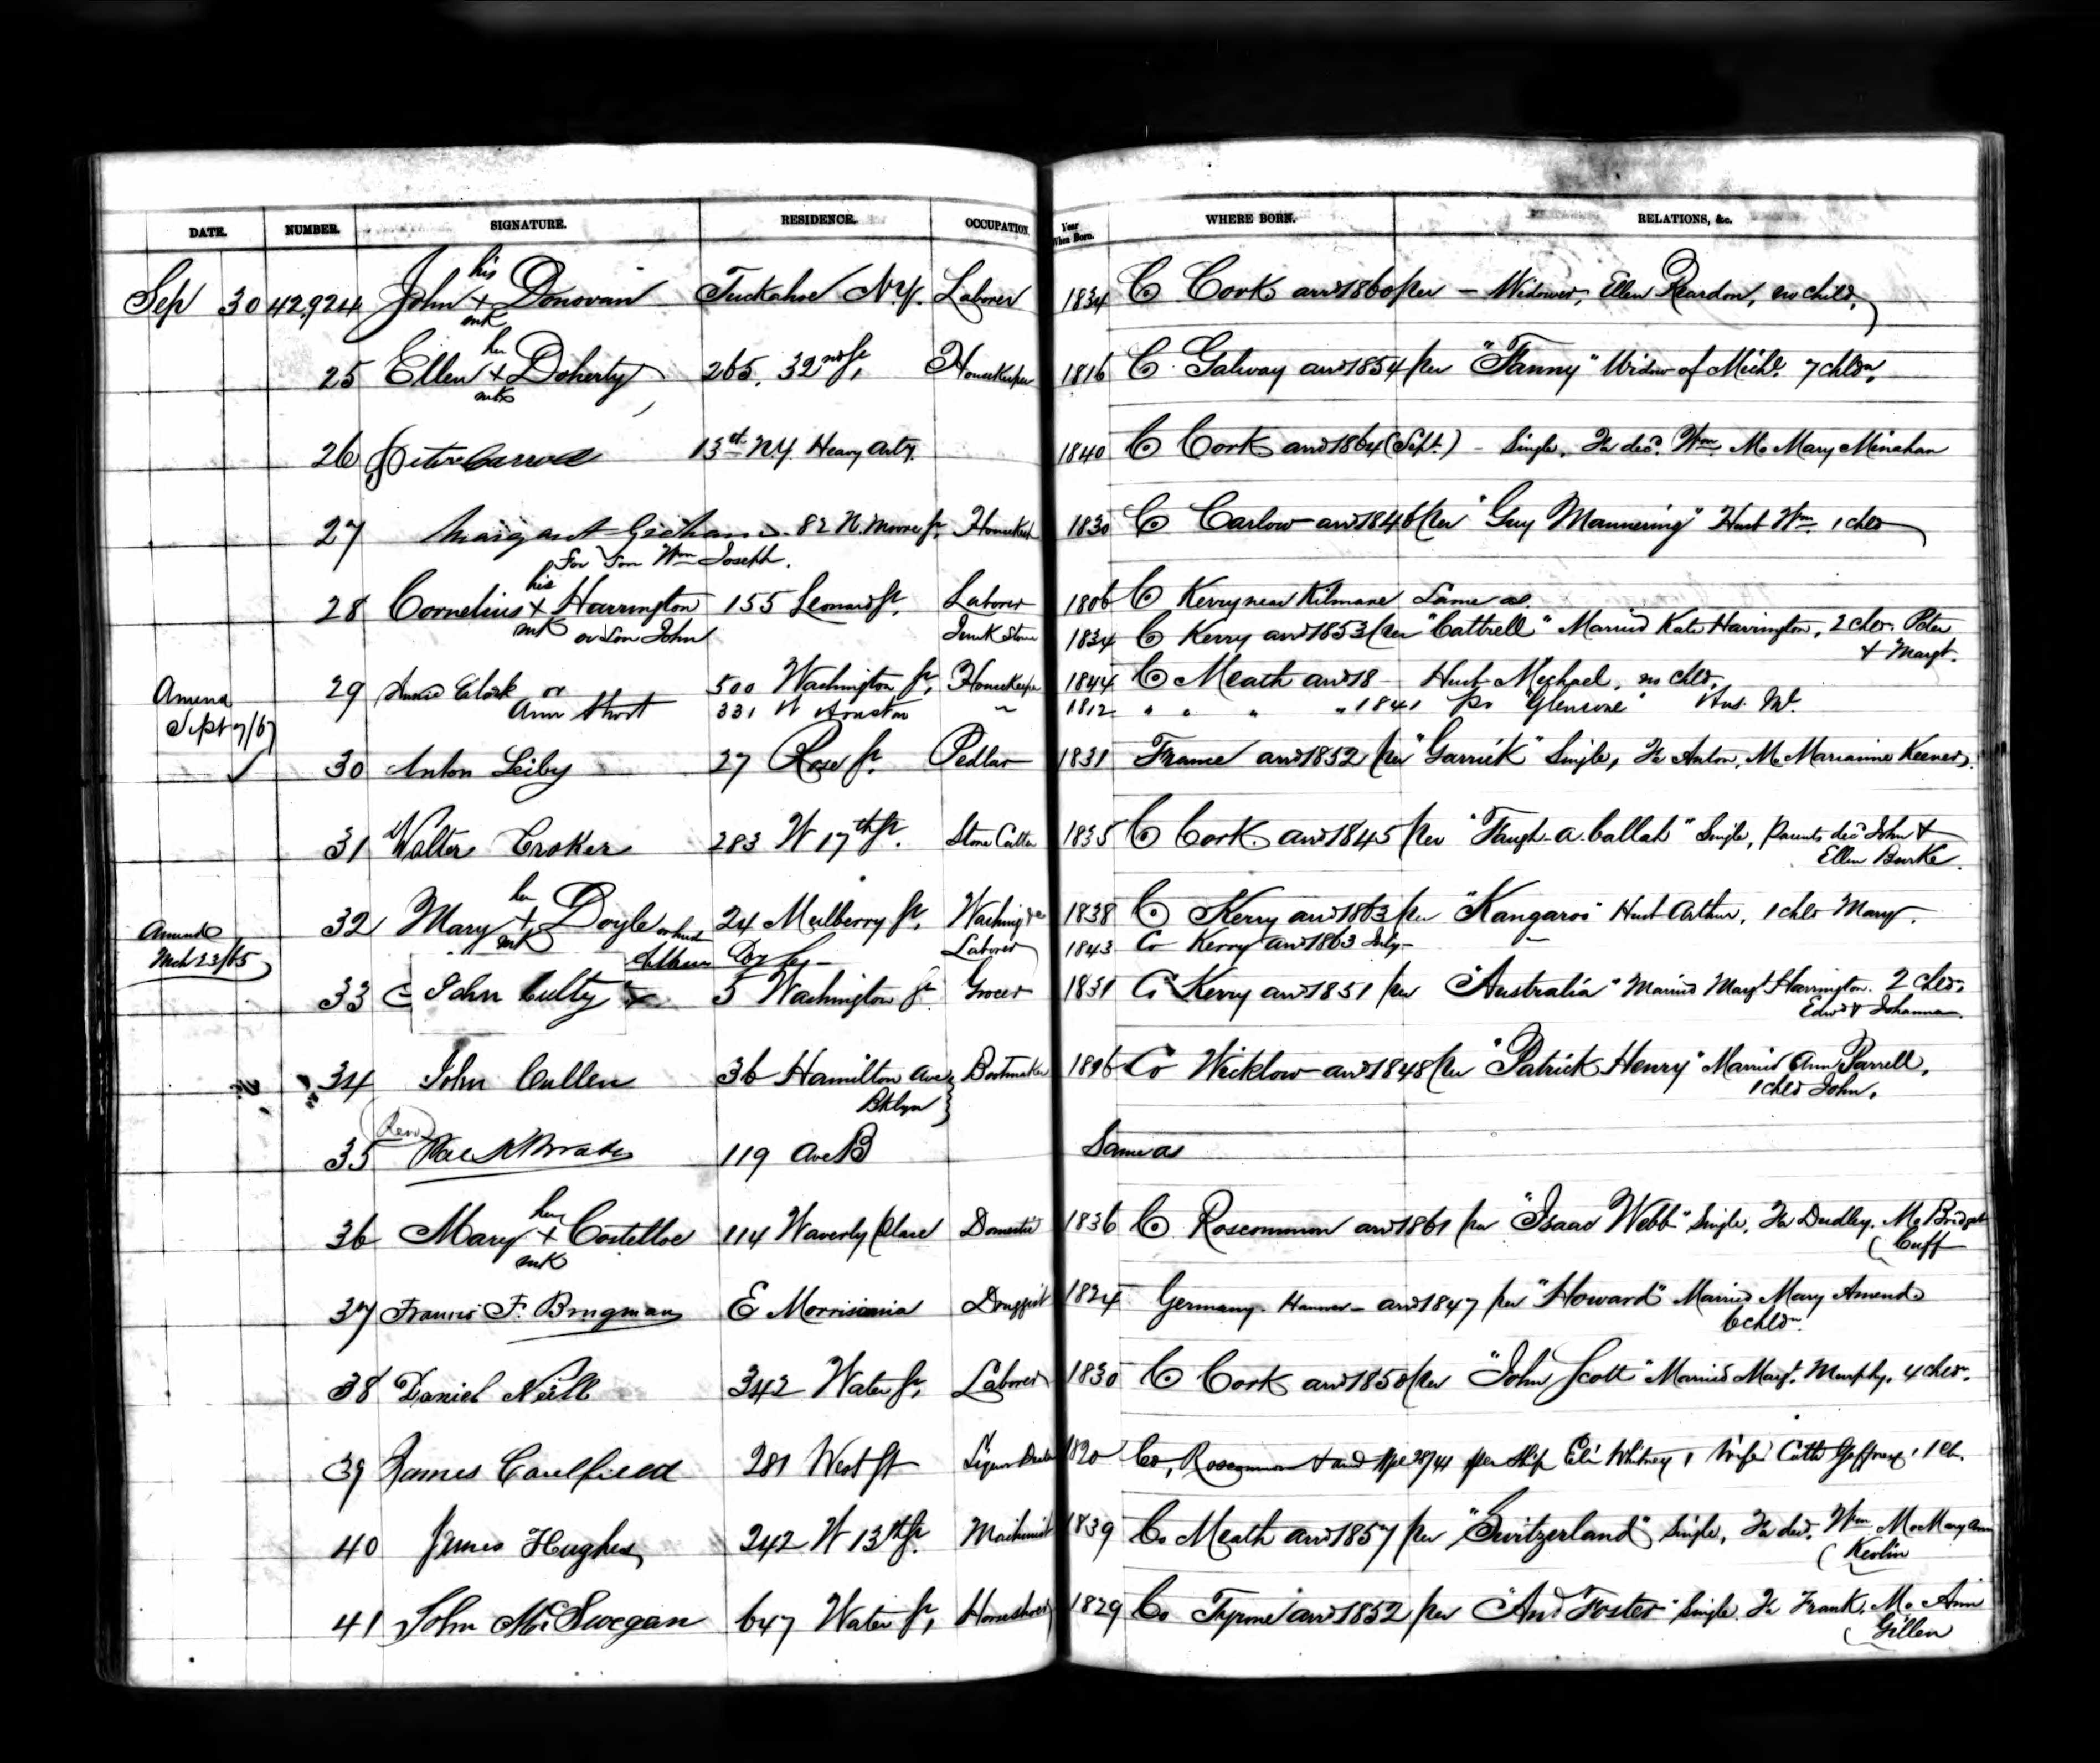 DATE. NUMBER. SIGNATURE. RESIDENCE. OCCUPATION. Year When Born. WHERE BORN. RELATIONS, &c.
his
Sep 30 42,924 John + Donovan Tuckahoe N.Y. Laborer 1834 Co Cork arrd 1860 per – Widower, Ellen Reardon, no child.
mk
her
25 Ellen + Doherty 265. 32nd St, Housekeeper 1816 Co Galway arrd 1854 per "Fanny" Widow of Michl. 7 chldn.
mk
26 Peter Carroll 13th N.Y. Heavy Arty. 1840 Co Cork arrd 1864 (Sept.) – Single, Fa decd. Wm Mo Mary Minahan
27 Margaret Graham 82 N. Moore St, Housekeeper 1830 Co Carlow arrd 1846 per "Guy Mannering" Husb Wm 1 chld
For Son Wm Joseph.
his
28 Cornelius + Harrington 155 Leonard St, Laborer 1806 Co Kerry near Kilmare Same as
mk or Son John Junk Store 1834 Co Kerry arrd 1853 per "Cattrell" Married Kate Harrington, 2 chld. Peter
& Margt.
Amend 29 Annie Clark or 500 Washington St, Housekeeper 1844 Co Meath arrd 18 – Husb Michael, no chld.
Ann Short 331 W Houston " 1812 " " " " 1841 pr "Glensone" Hus. Ml.
Sept 7/67
30 Anton Leiby 27 Rose St. Pedlar 1831 France arrd 1852 per "Garrick" Single, Fa Anton, Mo Marianne Keener.
31 Walter Croker 283 W 17th St. Stone Cutter 1835 Co Cork. arrd 1845 per "Faugh-a-ballah" Single, Parents decd John &
Ellen Burke.
her
Amend 32 Mary + Doyle or husb 24 Mulberry St, Washing &c 1838 Co Kerry arrd 1863 per "Kangaroo" Husb Arthur, 1 chld Mary.
mk Laborer 1843 Co Kerry arrd 1863 July –
Mch 23/65 Arthur
33 John Culty + 5 Washington St Grocer 1831 Co Kerry arrd 1851 per "Australia" Married Margt Harrington. 2 chld.
Edwd & Johanna.
34 John Cullen 36 Hamilton Ave Bootmaker Co Wicklow arrd 1848 per "Patrick Henry" Married Ann Farrell,
Bklyn 1 chld John.
Rev
35 119 Ave B Same as
her
36 Mary + Costelloe 114 Waverly Place Domestic 1836 Co Roscommon arrd 1861 per "Isaac Webb" Single, Fa Dudley, Mo Bridget
mk Cuff
37 Francis F. Brugman E Morrisania Druggist 1824 Germany. Hanover – arrd 1847 per "Howard" Married Mary Amend.
6 chldn.
38 Daniel Neill 342 Water St, Laborer 1830 Co Cork arrd 1850 per "John Scott" Married Margt. Murphy. 4 chldn.
39 James Caulfield 281 West St Liquor Dealer 1820 Co, Roscommon & arrd Apl 28/41 per Ship Eli Whitney, Wife Cathe Geffney, 1 Ch.
40 James Hughes 242 W 13th St. Machinist 1839 Co Meath arrd 1857 per "Switzerland" Single, Fa decd. Wm Mo Mary Ann
Kerlin
41 John McSwegan 647 Water St, Horseshoer 1829 Co Tyrone arrd 1852 per "And Foster" Single. Fa Frank. Mo Ann
Gillen